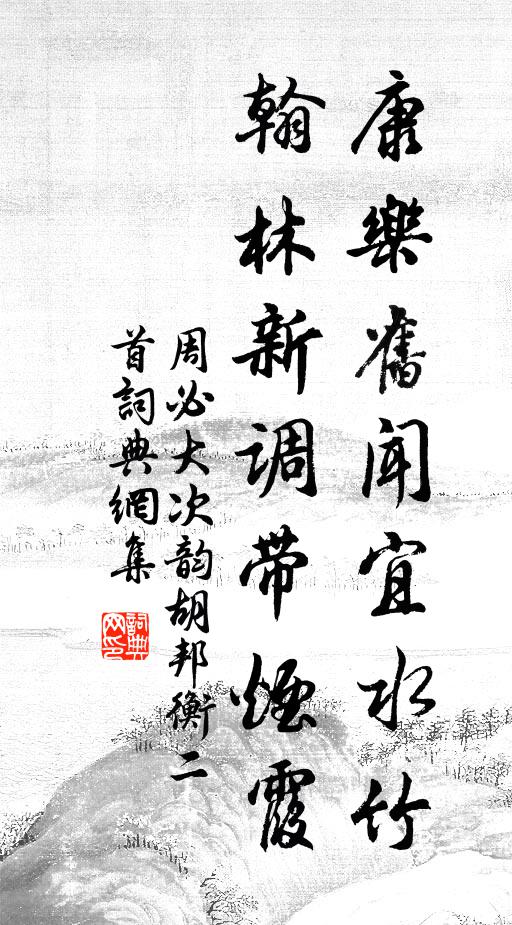 康樂舊聞宜水竹
翰林新調帶煙霞
周必大次韵胡邦衡二
首詞典網集
詞典网印